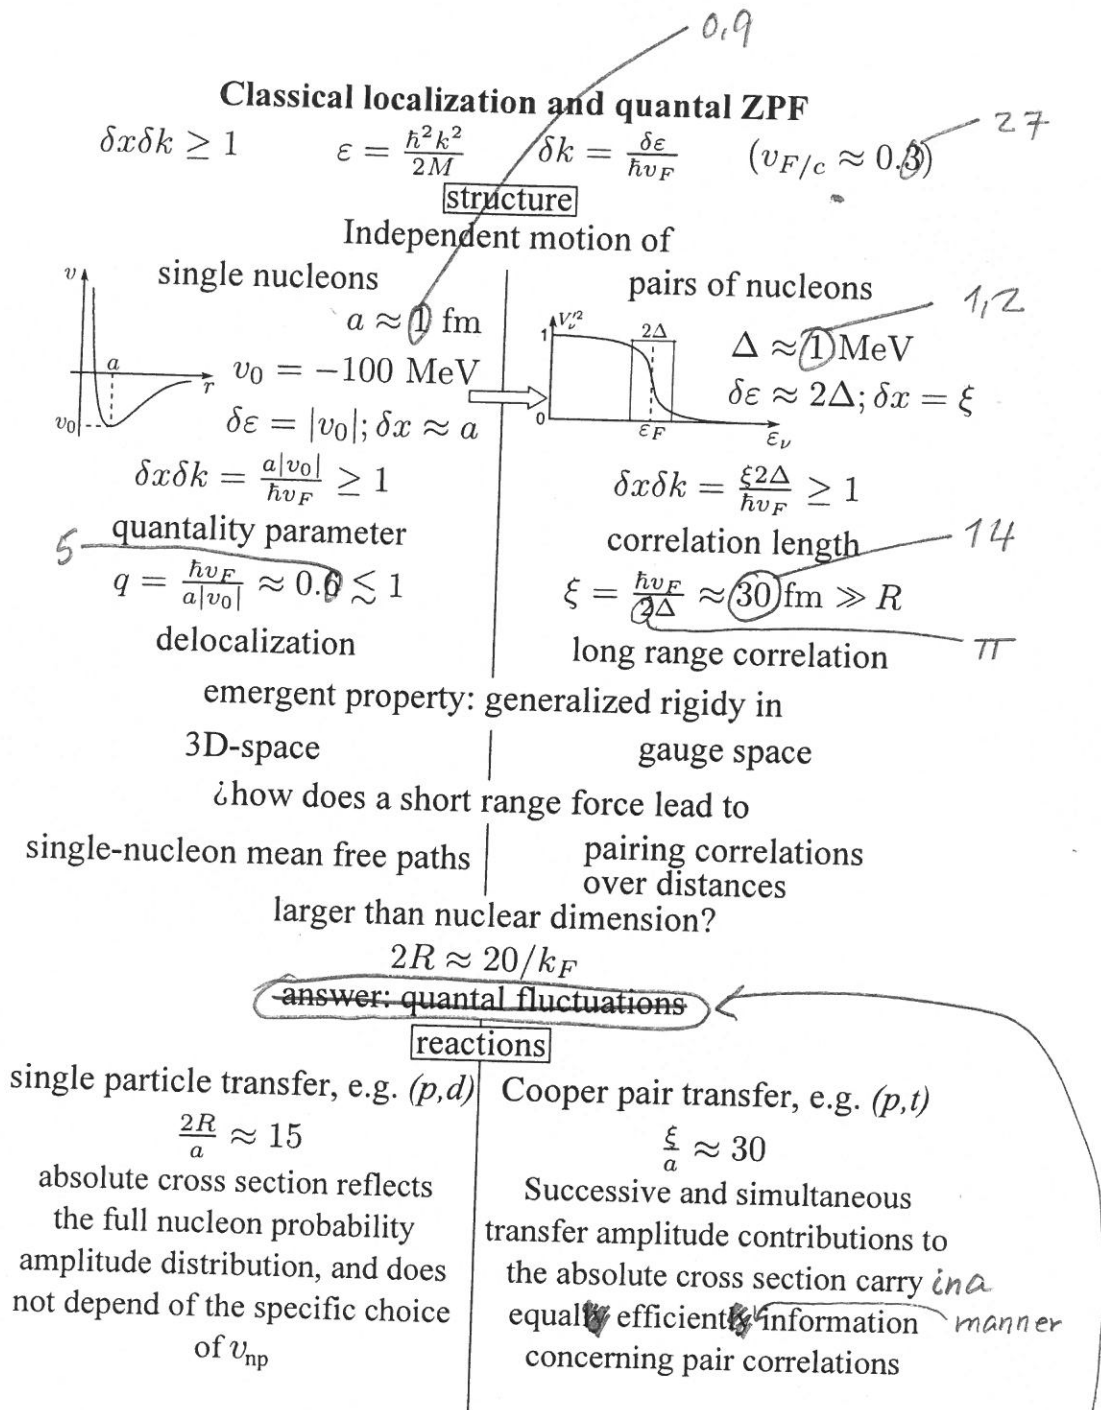 0,9
Classical localization and quantal ZPF
27
δxδk ≥ 1 ε = ℏ²k²/2M δk = δε/ℏv_F (v_{F/c} ≈ 0.3)
structure
Independent motion of
single nucleons
v
a ≈ 1 fm
a
r
v₀ = −100 MeV
v₀
δε = |v₀|; δx ≈ a
δxδk = a|v₀|/ℏv_F ≥ 1
quantality parameter
5
q = ℏv_F/a|v₀| ≈ 0.6 ≲ 1
delocalization
pairs of nucleons
1,2
V'²_ν
2Δ
1
Δ ≈ 1 MeV
δε ≈ 2Δ; δx = ξ
0
ε_F
ε_ν
δxδk = ξ2Δ/ℏv_F ≥ 1
correlation length
14
ξ = ℏv_F/2Δ ≈ 30 fm ≫ R
π
long range correlation
emergent property: generalized rigidy in
3D-space gauge space
¿how does a short range force lead to
single-nucleon mean free paths
pairing correlations
over distances
larger than nuclear dimension?
2R ≈ 20/k_F
answer: quantal fluctuations
reactions
single particle transfer, e.g. (p,d)
2R/a ≈ 15
absolute cross section reflects
the full nucleon probability
amplitude distribution, and does
not depend of the specific choice
of v_np
Cooper pair transfer, e.g. (p,t)
ξ/a ≈ 30
Successive and simultaneous
transfer amplitude contributions to
the absolute cross section carry in a
equally efficiently information manner
concerning pair correlations